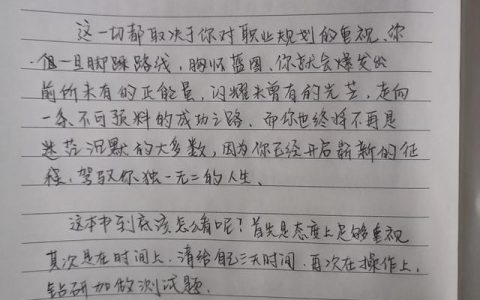 这一切都取决于你对职业规划的重视。你
一旦脚踩路线，胸怀蓝图，你就会爆发出
前所未有的正能量，闪耀未曾有的光芒，走向
一条不可预料的成功之路。而你也终将不再是
迷茫沉默的大多数，因为你已经开启崭新的征
程，驾驭你独一无二的人生。
这本书到底该怎么看呢？首先是态度上足够重视
其次是在时间上，请给自己三天时间，再次在操作上，
钻研加做测试题。